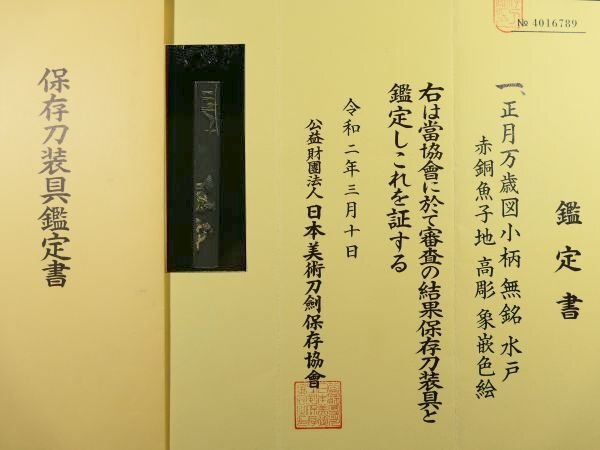 № 4016789
鑑定書
一、正月万歳図小柄 無銘 水戸
赤銅魚子地 高彫 象嵌色絵
右は當協會に於て審査の結果保存刀装具と
鑑定しこれを証する
令和二年三月十日
公益財團法人 日本美術刀劍保存協會
保存刀装具鑑定書